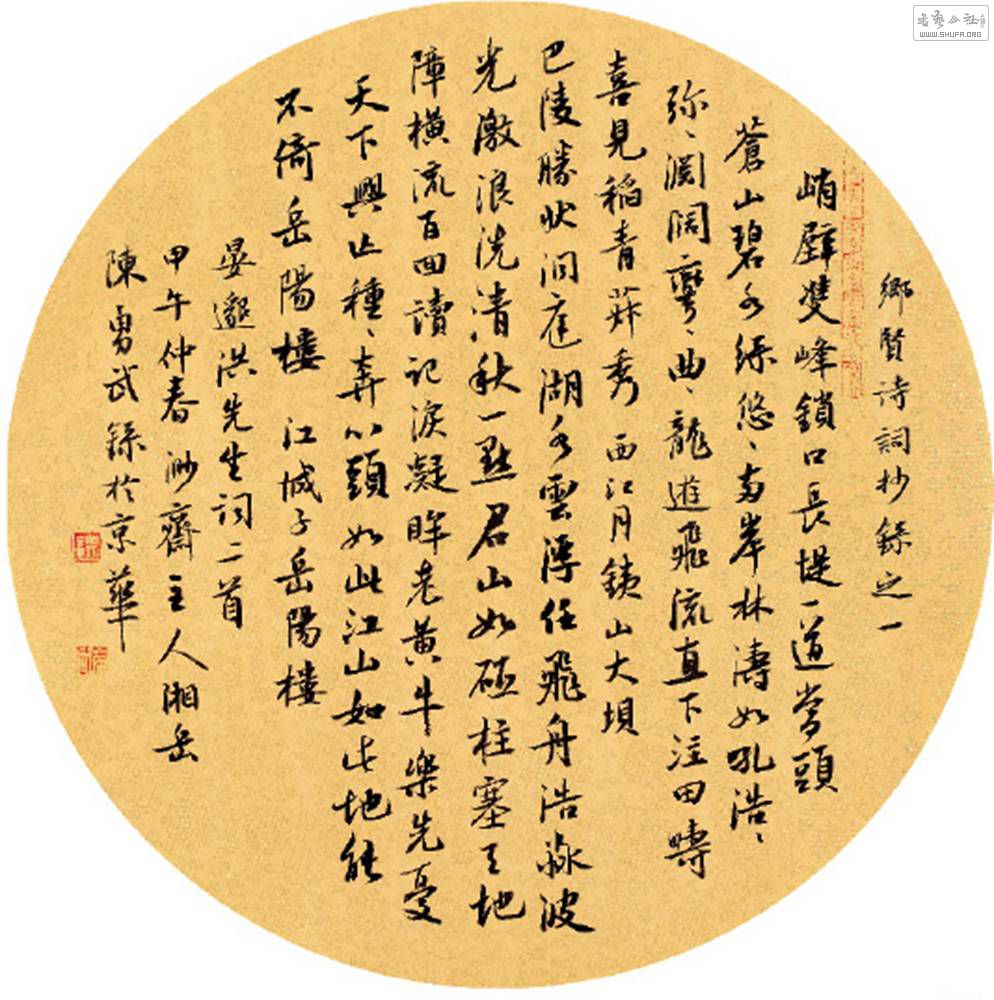 鄉賢詩詞抄錄之一
峭壁雙峰鎖口長堤一道當頭
蒼山碧水綠悠〻兩岸林濤如吼浩〻
弥〻淵闊彎〻曲〻龍遊飛流直下注田疇
喜見稻青秀 西江月鐵山大壩
巴陵勝狀洞庭湖水雲浮任飛舟浩淼波
光激浪洗清秋一點君山如砥柱塞天地
障橫流百回讀記淚凝眸老黃牛樂先憂
天下興亡種〻心頭如此江山如此地能
不倚岳陽樓 江城子岳陽樓
晏洪先生詞二首
甲午仲春渺齋主人湘岳
陳勇武錄於京華
書藝公社
WWW.SHUFA.ORG